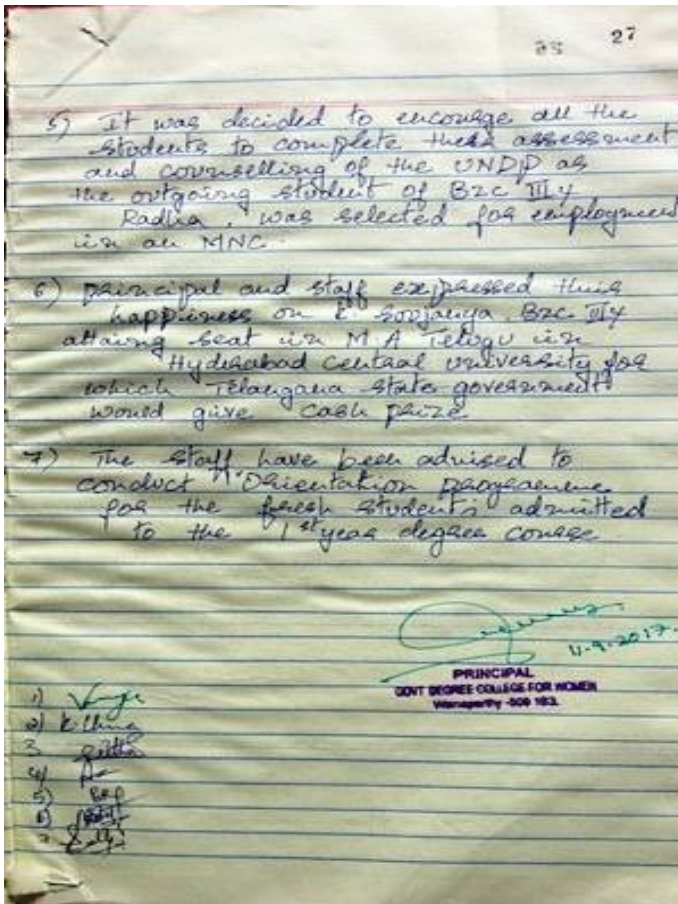 27
5) It was decided to encourage all the
students to complete their assessment
and counselling of the UNDP as
the outgoing student of BZC III Y
Radha, was selected for employment
in an MNC.
6) principal and staff expressed their
happiness on K Sowjanya BZC III Y
attaing seat in M.A Telugu in
Hyderabad central university for
which Telangana state government
would give cash prize
7) The staff have been advised to
conduct "Orientation programme
for the fresh students admitted
to the 1st year degree course
11-9-2017.
PRINCIPAL
GOVT DEGREE COLLEGE FOR WOMEN
Wanaparthy -509 103.
1)
2)
3
4)
5)
6)
7